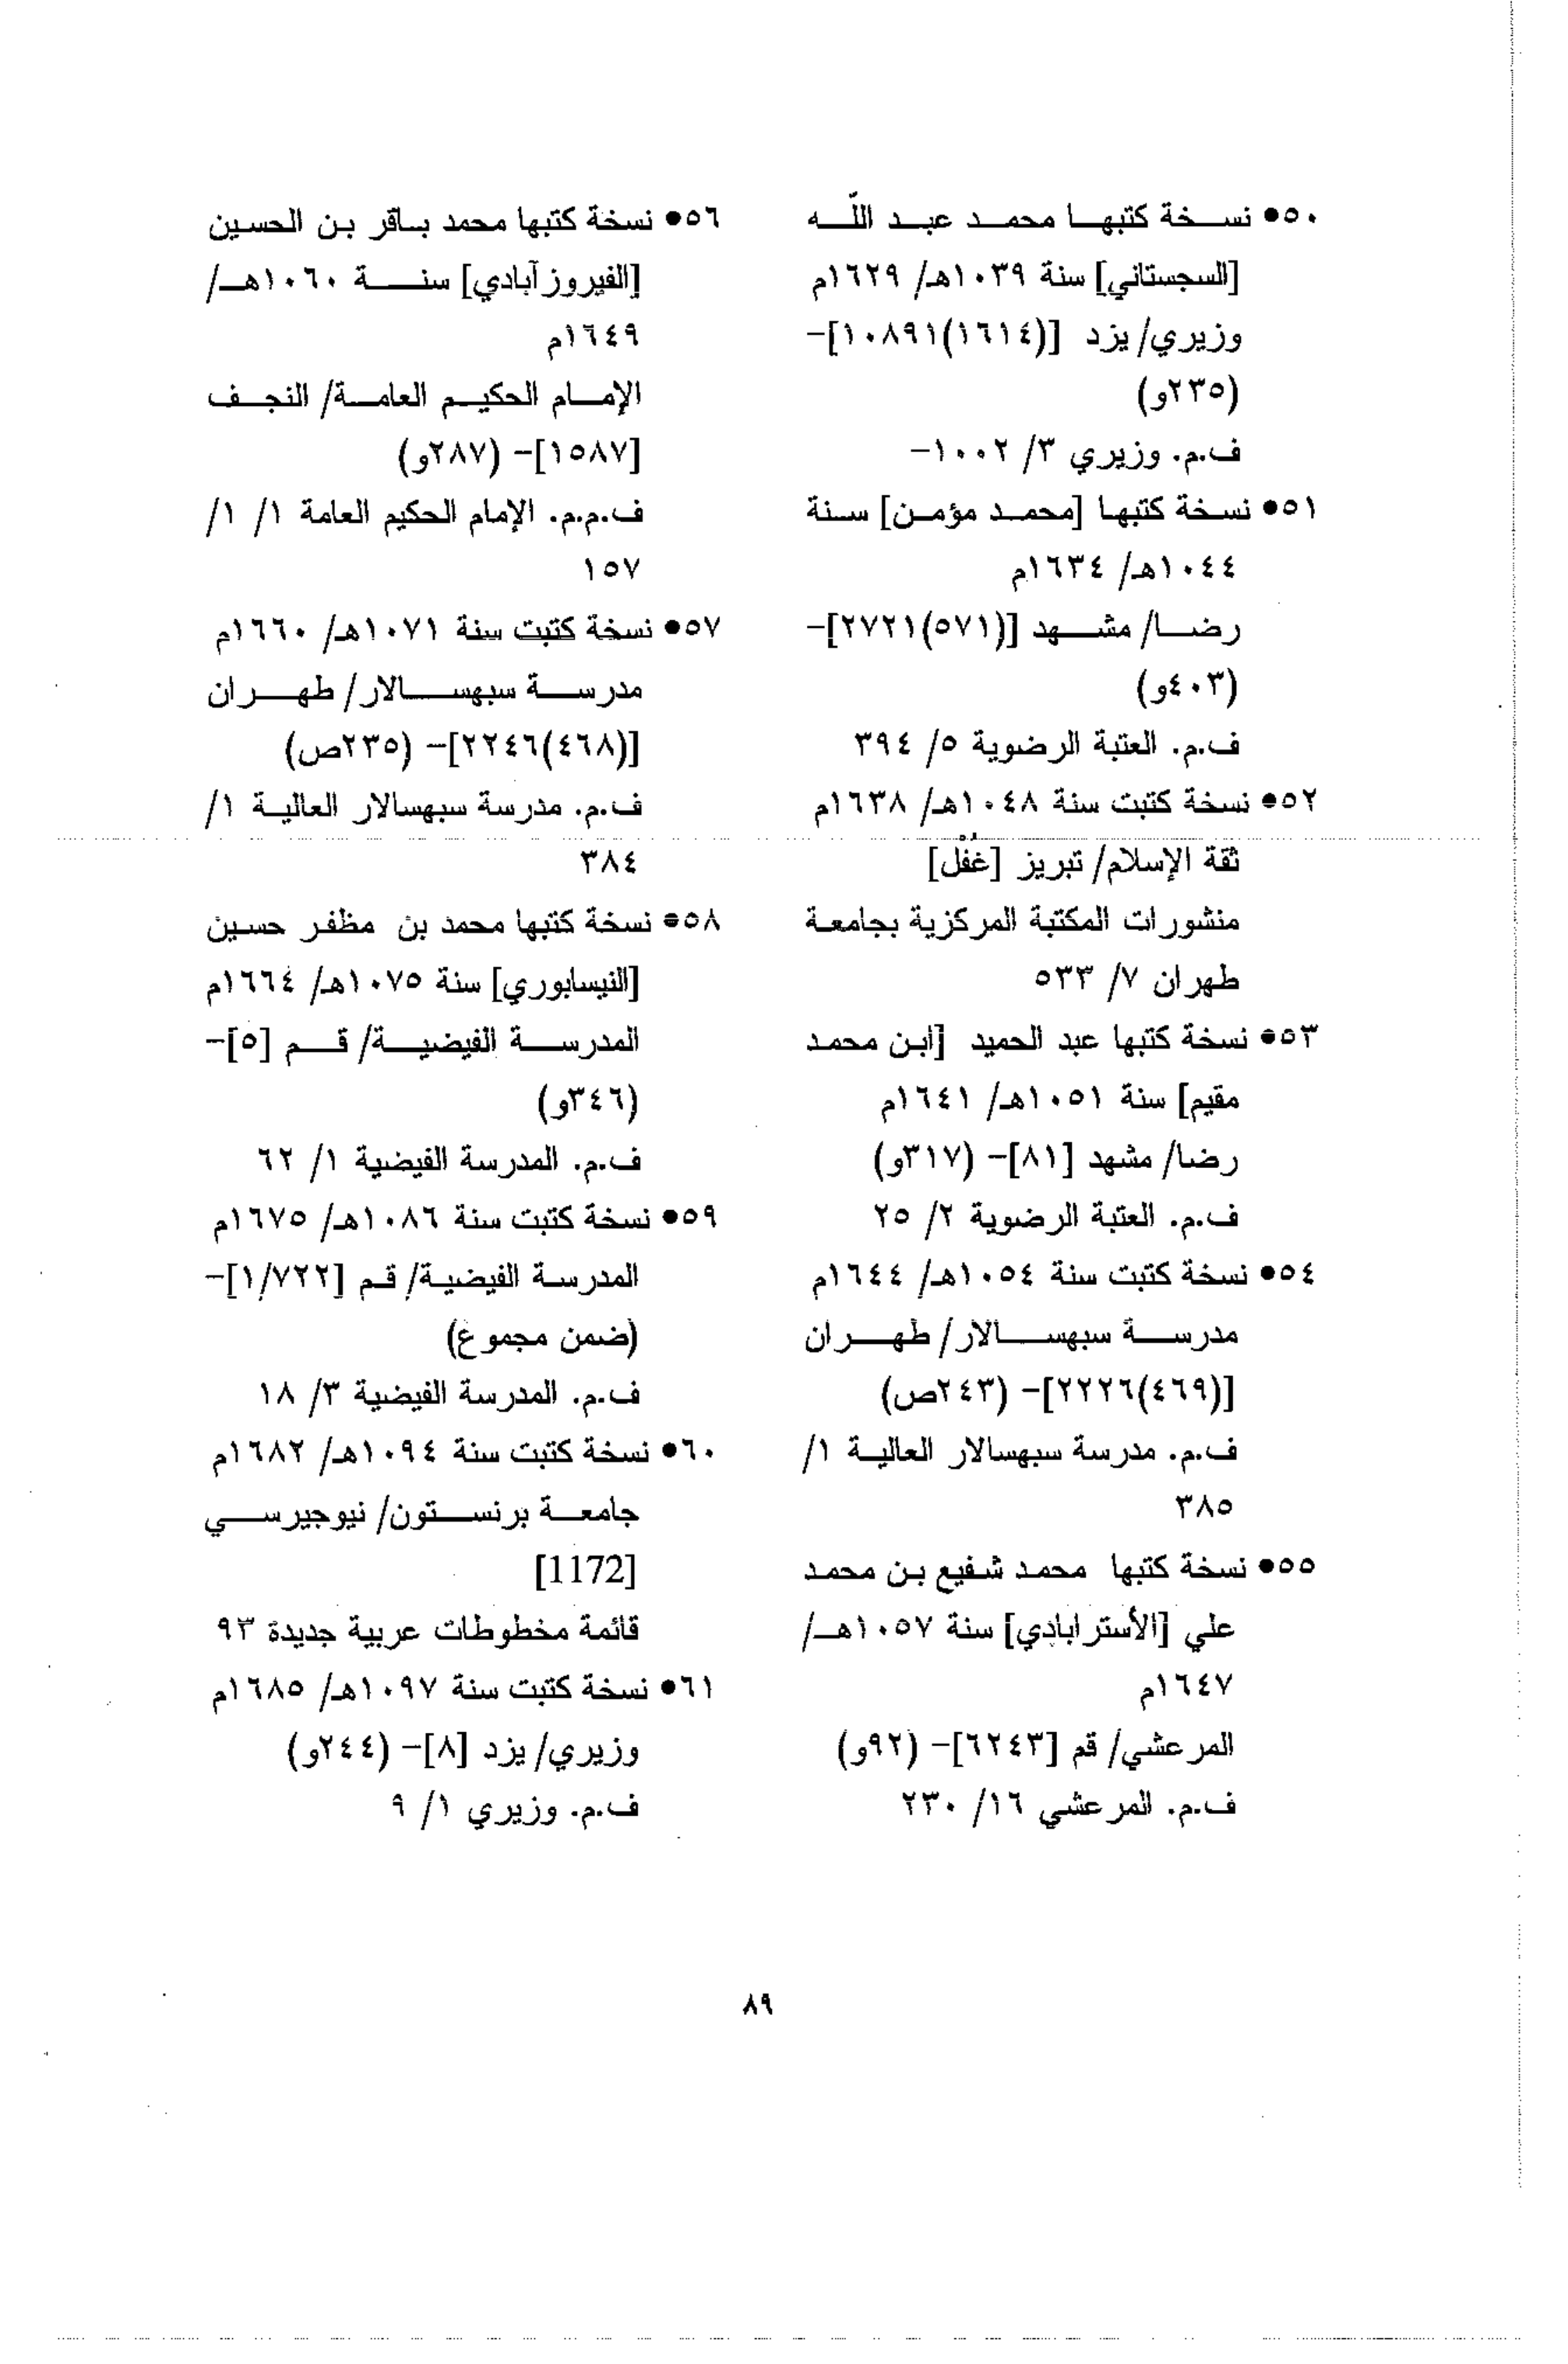 ٥٠● نسخة كتبها محمد عبد اللّه
[السجستاني] سنة ١٠٣٩هـ/ ١٦٢٩م
وزيري/ يزد [(١٦١٤)١٠٨٩١]-
(٢٣٥و)
ف.م. وزيري ٣/ ١٠٠٢-
٥١● نسخة كتبها [محمد مؤمن] سنة
١٠٤٤هـ/ ١٦٣٤م
رضا/ مشهد [(٥٧١)٢٧٢١]-
(٤٠٣و)
ف.م. العتبة الرضوية ٥/ ٣٩٤
٥٢● نسخة كتبت سنة ١٠٤٨هـ/ ١٦٣٨م
ثقة الإسلام/ تبريز [غفل]
منشورات المكتبة المركزية بجامعة
طهران ٧/ ٥٣٣
٥٣● نسخة كتبها عبد الحميد [ابن محمد
مقيم] سنة ١٠٥١هـ/ ١٦٤١م
رضا/ مشهد [٨١]- (٣١٧و)
ف.م. العتبة الرضوية ٢/ ٢٥
٥٤● نسخة كتبت سنة ١٠٥٤هـ/ ١٦٤٤م
مدرسة سبهسالار/ طهران
[(٤٦٩)٢٢٢٦]- (٢٤٣ص)
ف.م. مدرسة سبهسالار العالية ١/
٣٨٥
٥٥● نسخة كتبها محمد شفيع بن محمد
علي [الأسترابادي] سنة ١٠٥٧هـ/
١٦٤٧م
المرعشي/ قم [٦٢٤٣]- (٩٢و)
ف.م. المرعشي ١٦/ ٢٣٠
٥٦● نسخة كتبها محمد باقر بن الحسين
[الفيروزآبادي] سنة ١٠٦٠هـ/
١٦٤٩م
الإمام الحكيم العامة/ النجف
[١٥٨٧]- (٢٨٧و)
ف.م.م. الإمام الحكيم العامة ١/ ١/
١٥٧
٥٧● نسخة كتبت سنة ١٠٧١هـ/ ١٦٦٠م
مدرسة سبهسالار/ طهران
[(٤٦٨)٢٢٤٦]- (٢٣٥ص)
ف.م. مدرسة سبهسالار العالية ١/
٣٨٤
٥٨● نسخة كتبها محمد بن مظفر حسين
[النيسابوري] سنة ١٠٧٥هـ/ ١٦٦٤م
المدرسة الفيضية/ قم [٥]-
(٣٤٦و)
ف.م. المدرسة الفيضية ١/ ٦٢
٥٩● نسخة كتبت سنة ١٠٨٦هـ/ ١٦٧٥م
المدرسة الفيضية/ قم [١/٧٢٢]-
(ضمن مجموع)
ف.م. المدرسة الفيضية ٣/ ١٨
٦٠● نسخة كتبت سنة ١٠٩٤هـ/ ١٦٨٢م
جامعة برنستون/ نيوجيرسي
[1172]
قائمة مخطوطات عربية جديدة ٩٣
٦١● نسخة كتبت سنة ١٠٩٧هـ/ ١٦٨٥م
وزيري/ يزد [٨]- (٢٤٤و)
ف.م. وزيري ١/ ٩
٨٩